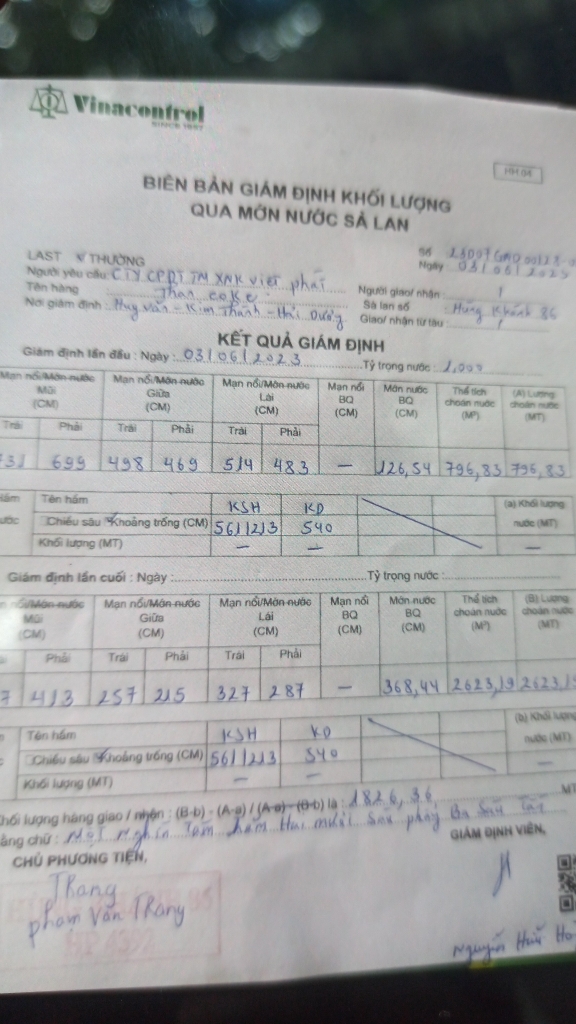 Vinacontrol
SINCE 1957
HH.04
BIÊN BẢN GIÁM ĐỊNH KHỐI LƯỢNG
QUA MỚN NƯỚC SÀ LAN
LAST THƯỜNG
Số
Người yêu cầu: CTY CPĐT TM XNK Việt phát
Ngày 03/06/2023
Tên hàng Than coke
Người giao/ nhận
Nơi giám định: Huy Văn - Kim Thành - Hải Dương
Sà lan số : Hùng Khánh 86
Giao/ nhận từ tàu
KẾT QUẢ GIÁM ĐỊNH
Giám định lần đầu : Ngày : 03/06/2023 Tỷ trọng nước : 1,000
Mạn nổi/Mớn nước Mũi (CM) Mạn nổi/Mớn nước Giữa (CM) Mạn nổi/Mớn nước Lái (CM) Mạn nổi BQ (CM) Mớn nước BQ (CM) Thể tích choán nước (M³) (A) Lượng choán nước (MT)
Trái Phải Trái Phải Trái Phải
731 699 498 469 514 483 — 126,54 796,83 796,83
Tên hầm KSH KD (a) Khối lượng nước (MT)
Chiều sâu Khoảng trống (CM) 561/213 540
Khối lượng (MT) — — —
Giám định lần cuối : Ngày : Tỷ trọng nước :
nổi/Mớn nước Mũi (CM) Mạn nổi/Mớn nước Giữa (CM) Mạn nổi/Mớn nước Lái (CM) Mạn nổi BQ (CM) Mớn nước BQ (CM) Thể tích choán nước (M³) (B) Lượng choán nước (MT)
Phải Trái Phải Trái Phải
7 413 257 215 327 287 — 368,44 2623,19 2623,19
Tên hầm KSH KD (b) Khối lượng nước (MT)
Chiều sâu Khoảng trống (CM) 561/213 540
Khối lượng (MT) — — —
hối lượng hàng giao / nhận : (B-b) - (A-a) / (A-a) - (B-b) là : 1826,36 MT
ằng chữ : Một nghìn tám trăm hai mươi sáu phẩy Ba sáu Tấn
CHỦ PHƯƠNG TIỆN,
GIÁM ĐỊNH VIÊN,
Trang
phạm Văn Trang
Nguyễn Hữu